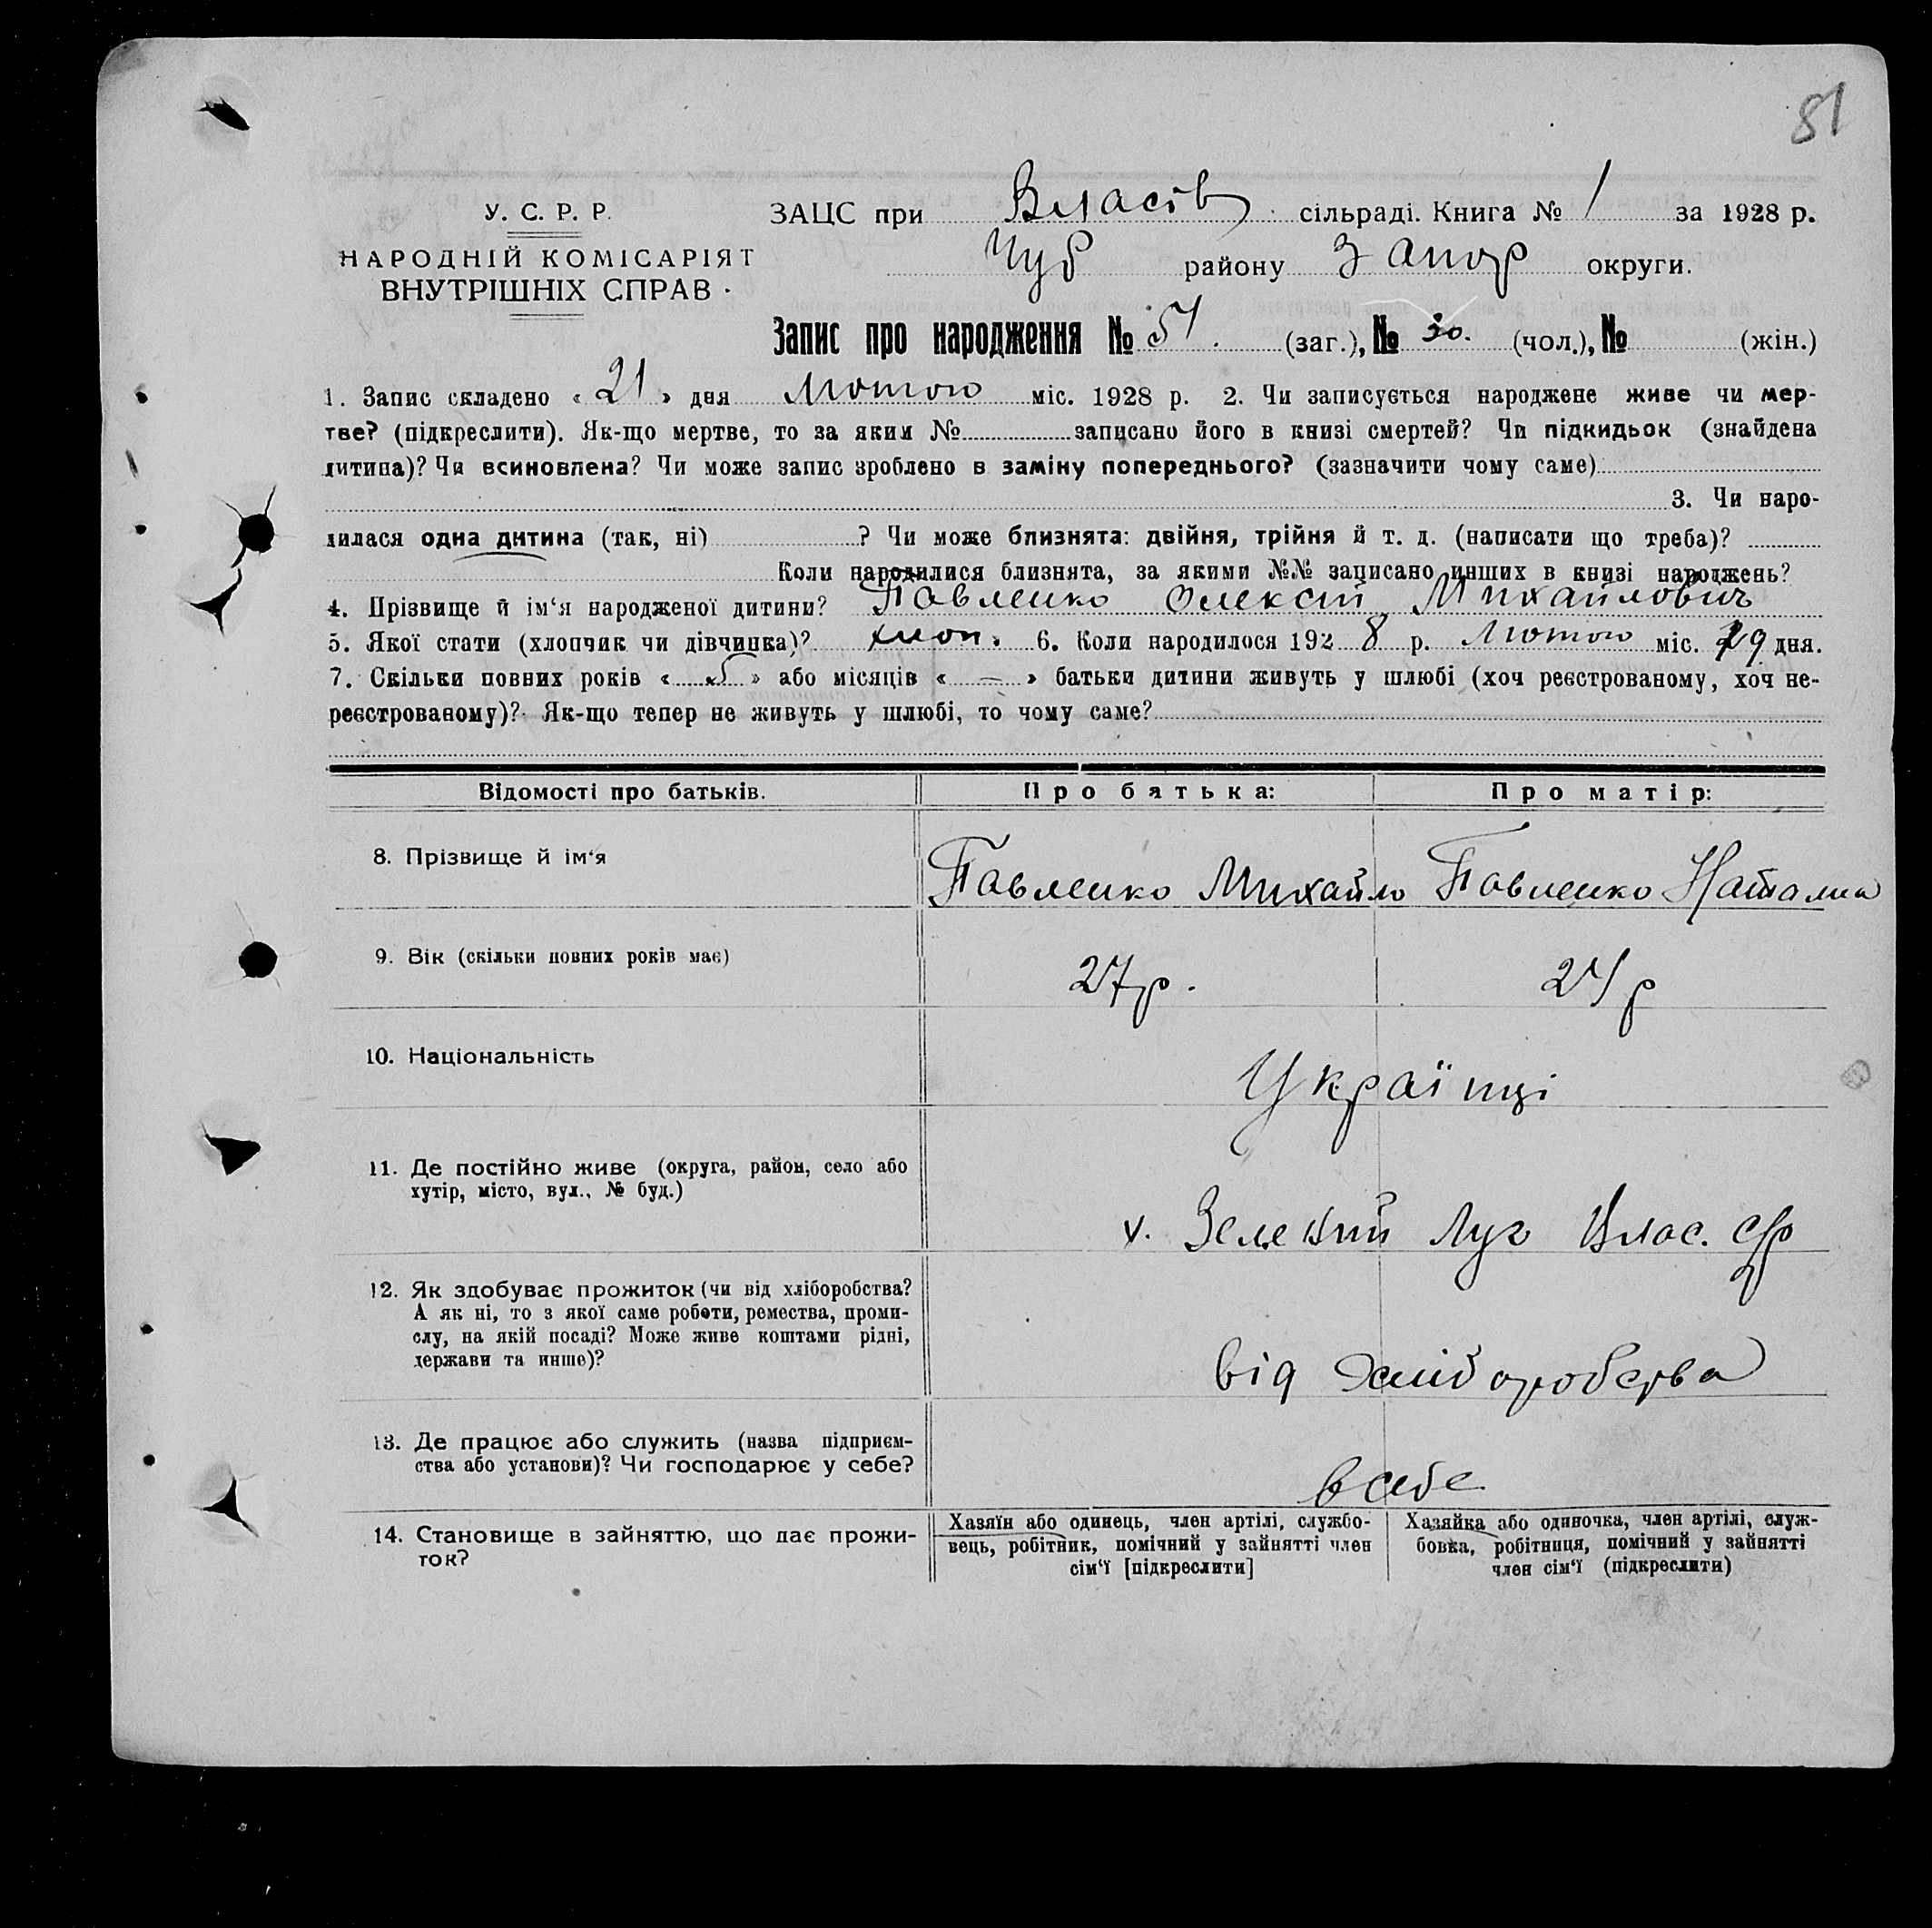 81
У. С. Р. Р.
НАРОДНІЙ КОМІСАРІЯТ
ВНУТРІШНІХ СПРАВ
ЗАЦС при Власів сільраді. Книга № 1 за 1928 р.
Чуб району Запор округи.
Запис про народження № 51. (заг.), № 30. (чол.), № (жін.)
1. Запис складено « 21 » дня Лютого міс. 1928 р. 2. Чи записується народжене живе чи мер-
тве? (підкреслити). Як-що мертве, то за яким № записано його в книзі смертей? Чи підкидьок (знайдена
дитина)? Чи всиновлена? Чи може запис зроблено в заміну попереднього? (зазначити чому саме)
3. Чи наро-
дилася одна дитина (так, ні) ? Чи може близнята: двійня, трійня й т. д. (написати що треба)?
Коли народилися близнята, за якими №№ записано инших в книзі народжень?
4. Прізвище й ім‘я народженої дитини? Павленко Олексій Михайлович
5. Якої стати (хлопчик чи дівчинка)? хлоп. 6. Коли народилося 192 8 р. Лютого міс. 19 дня.
7. Скільки повних років « 5 » або місяців « — » батьки дитини живуть у шлюбі (хоч реєстрованому, хоч не-
реєстрованому)? Як-що тепер не живуть у шлюбі, то чому саме?
Відомості про батьків. Про батька: Про матір:
8. Прізвище й ім‘я Павленко Михайло Павленко Наталия
9. Вік (скільки повних років має) 27р. 24р
10. Національність Українці
11. Де постійно живе (округа, район, село або
хутір, місто, вул., № буд.)
х. Зелений Луг Влас. с/р
12. Як здобуває прожиток (чи від хліборобства?
А як ні, то з якої саме роботи, ремества, проми-
слу, на якій посаді? Може живе коштами рідні,
держави та инше)?
від хліборобства
13. Де працює або служить (назва підприєм-
ства або установи)? Чи господарює у себе?
в себе
14. Становище в зайняттю, що дає прожи-
ток?
Хазяїн або одинець, член артілі, службо-
вець, робітник, помічний у зайнятті член
сім‘ї [підкреслити]
Хазяйка або одиночка, член артілі, служ-
бовка, робітниця, помічний у зайнятті
член сім‘ї (підкреслити)